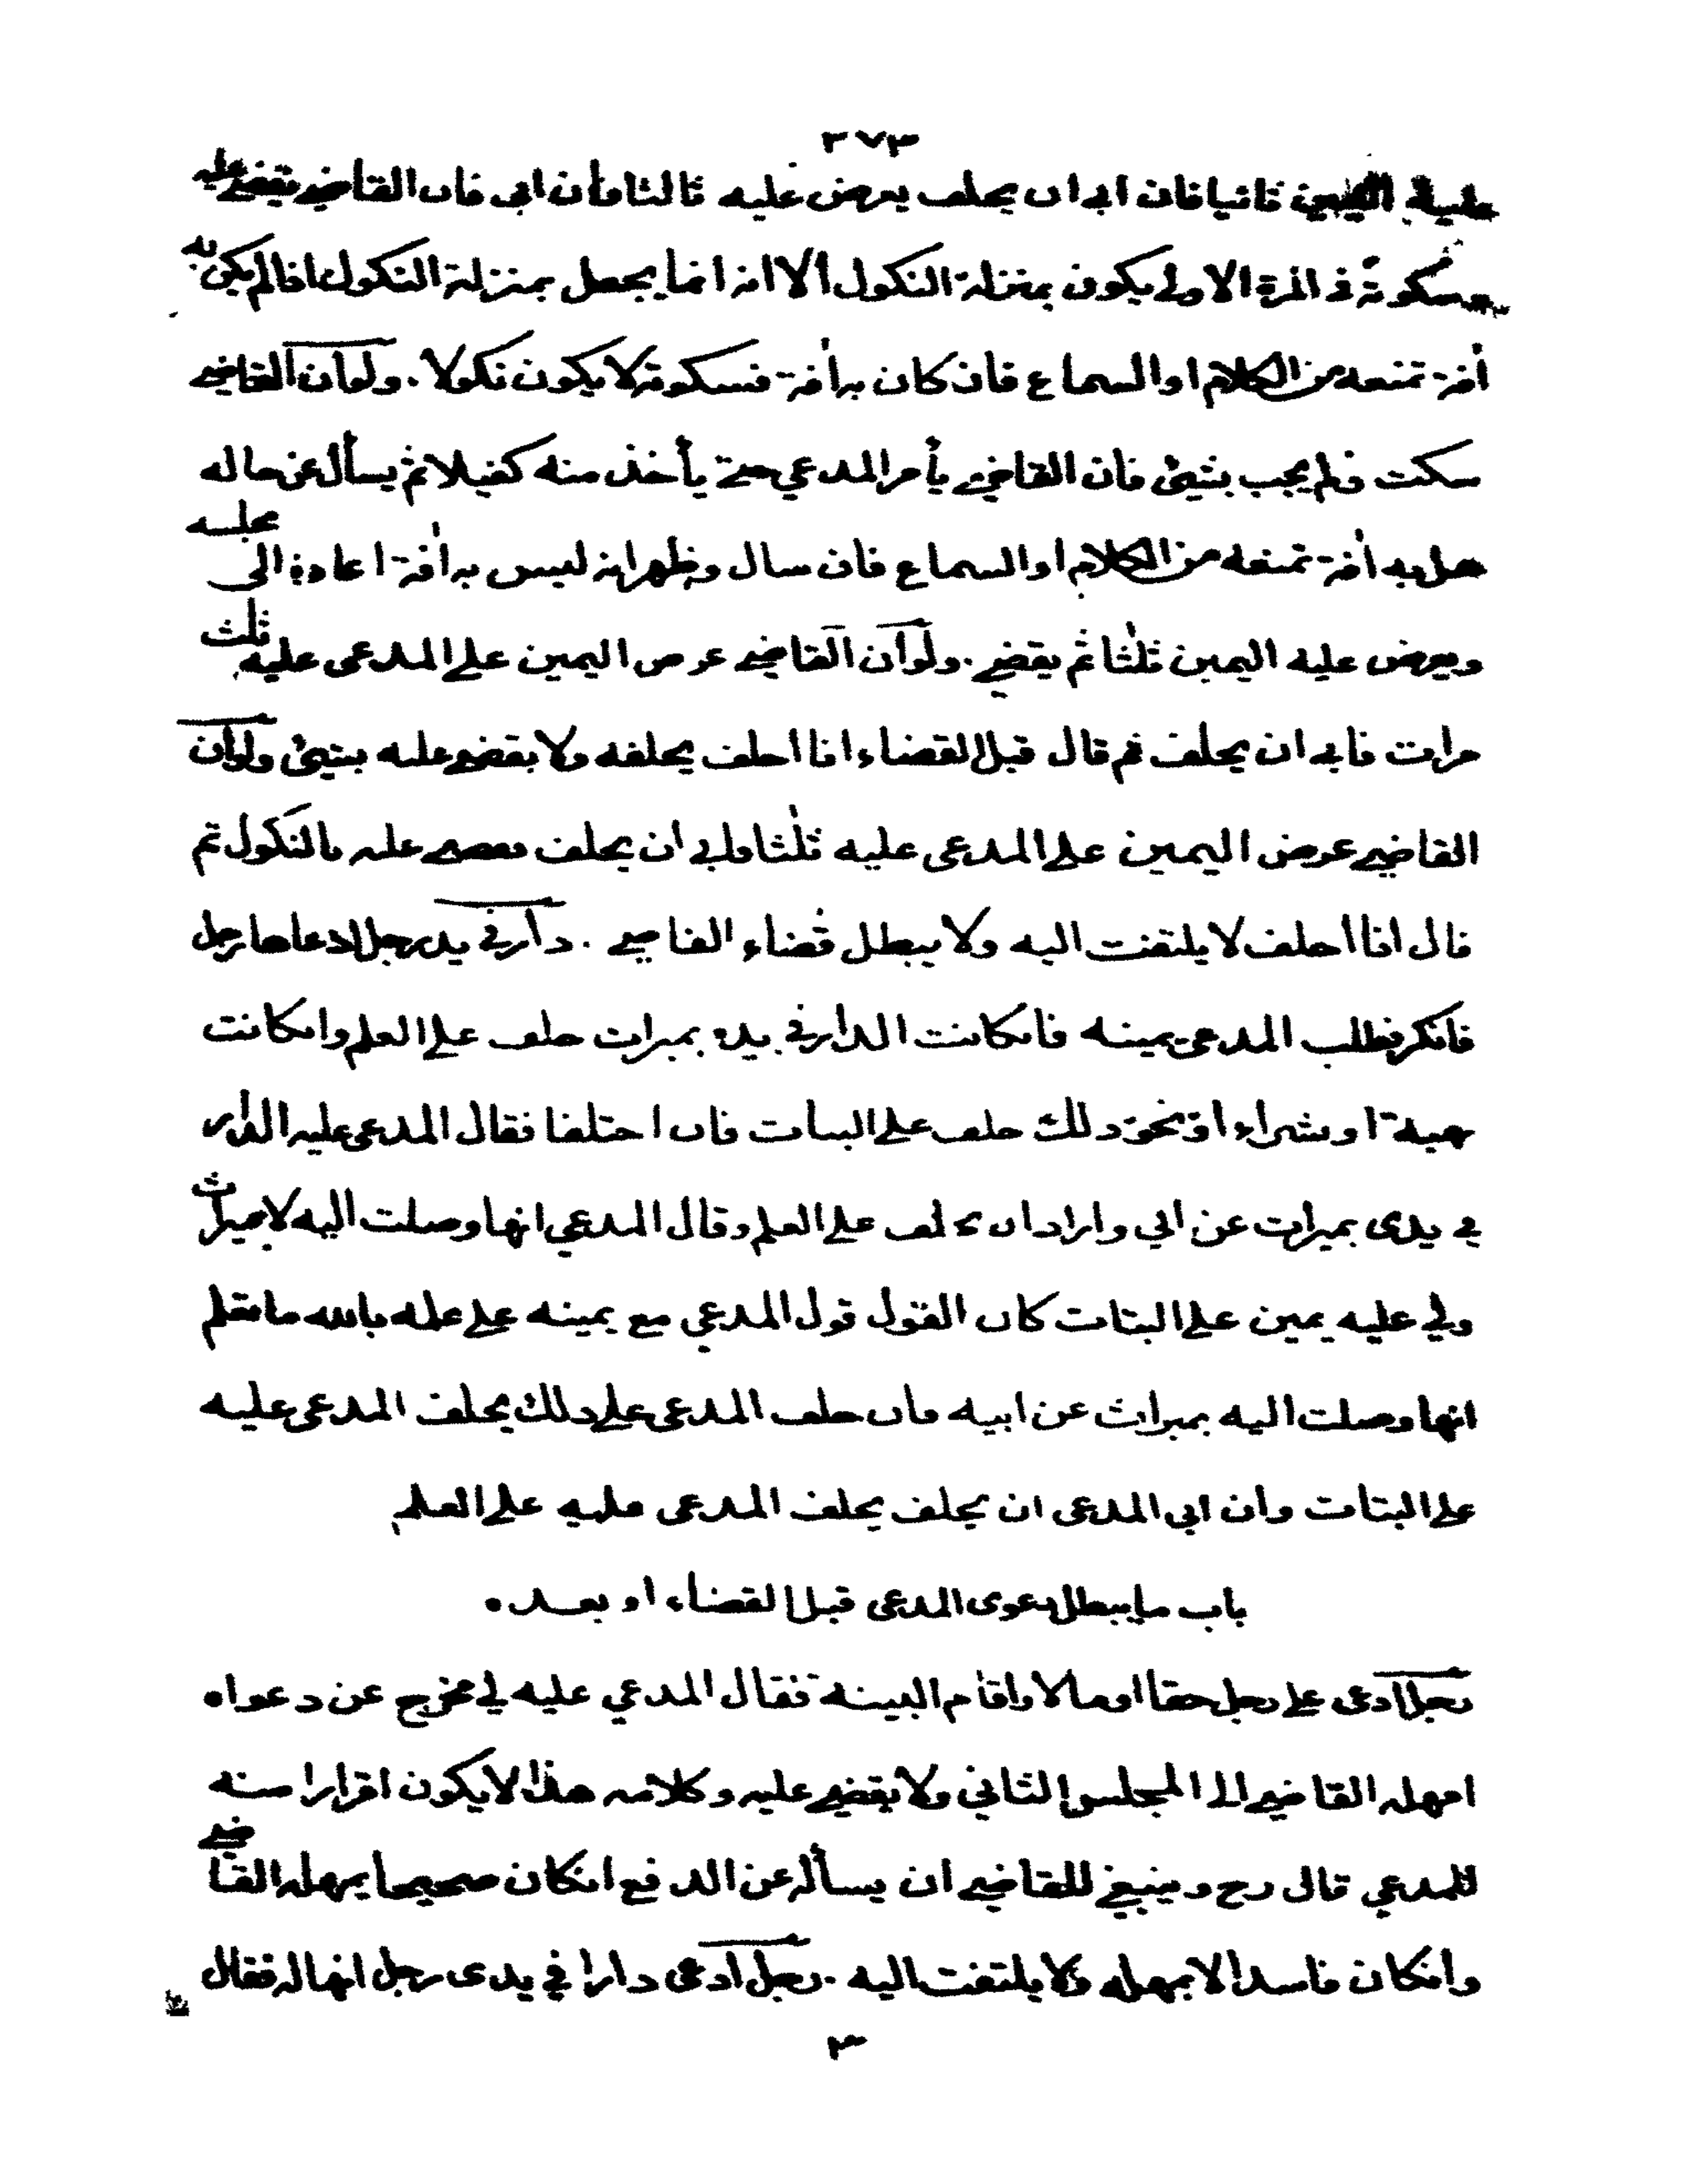 ٣٧٣
عليه اليمين ثانيا فان ابى ان يحلف يعرض عليه ثالثا فان ابى فان القاضي يقضي عليه
وسكوته في المرة الاولى يكون بمنزلة النكول الا انه انما يجعل بمنزلة النكول اذا لم يكن به
آفة تمنعه من الكلام او السماع فان كان به آفة فسكوته لا يكون نكولا . ولو ان القاضي
سكت ولم يجب بشئ فان القاضي يأمر المدعي حتى يأخذ منه كفيلا ثم يسأل عن حاله
هل به آفة تمنعه من الكلام او السماع فان سال وظهر انه ليس به آفة اعاده الى مجلسه
ويعرض عليه اليمين ثلثا ثم يقضي . ولو ان القاضي عرض اليمين على المدعى عليه ثلث
مرات فابى ان يحلف ثم قال قبل القضاء انا احلف يحلفه ولا يقضي عليه بشئ ولو ان
القاضي عرض اليمين على المدعى عليه ثلثا فابى ان يحلف فقضى عليه بالنكول ثم
قال انا احلف لا يلتفت اليه ولا يبطل قضاء القاضي . دار في يد رجل ادعاها رجل
فانكر فطلب المدعى يمينه فان كانت الدار في يده بميراث حلف على العلم وان كانت
هبة او شراء او نحو ذلك حلف على البتات فان اختلفا فقال المدعى عليه الدار
في يدى بميراث عن ابي واراد ان يحلف على العلم وقال المدعي انها وصلت اليه لا بميراث
ولي عليه يمين على البتات كان القول قول المدعي مع يمينه على علمه بالله ما يعلم
انها وصلت اليه بميراث عن ابيه فان حلف المدعى على ذلك يحلف المدعى عليه
على البتات وان ابي المدعى ان يحلف يحلف المدعى عليه على العلم
باب ما يبطل دعوى المدعى قبل القضاء او بعده
رجل ادعى على رجل حقا او مالا واقام البينة فقال المدعي عليه لي مخرج عن دعواه
امهله القاضي الى المجلس الثاني ولا يقضي عليه وكلامه هذا لا يكون اقرارا منه
للمدعي قال رح وينبغي للقاضي ان يسأله عن الدفع ان كان صحيحا يمهله القاضي
وان كان فاسدا لا يمهله ولا يلتفت اليه . رجل ادعى دارا في يدى رجل انها له فقال
٣